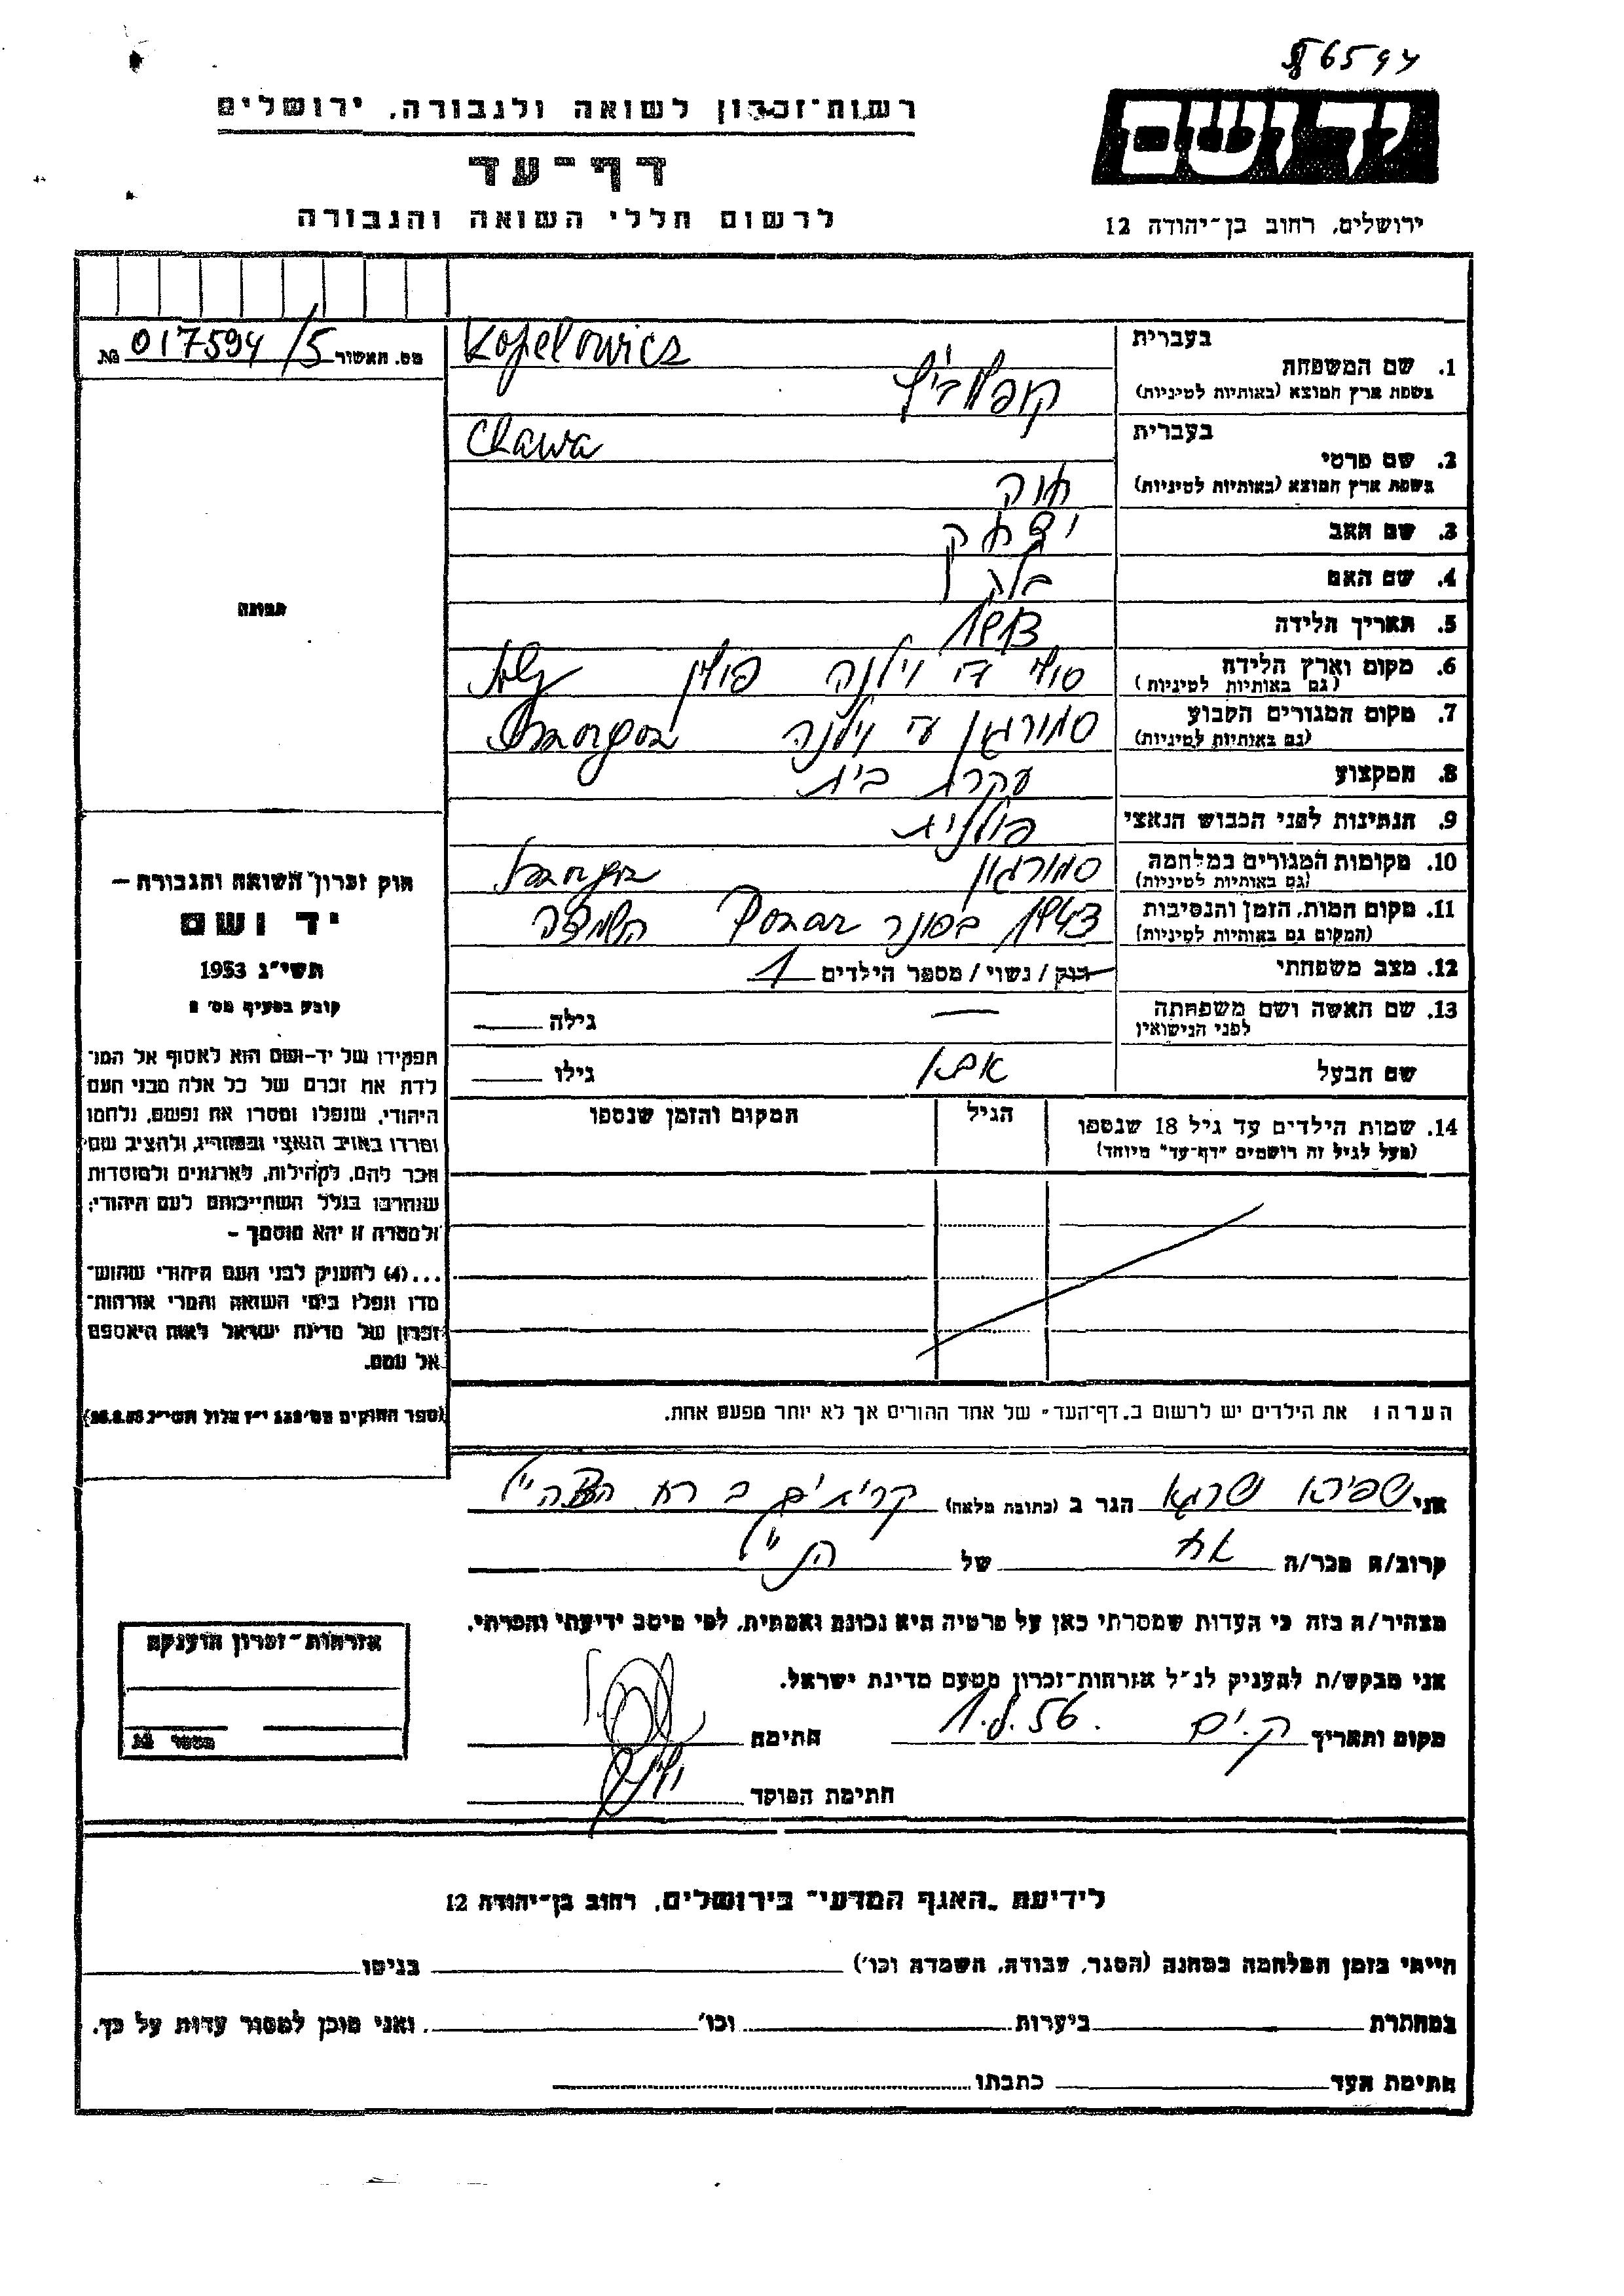 6594
רשות־זכרון לשואה ולגבורה, ירושלים
דף־עד
לרשום חללי השואה והגבורה
יד ושם
ירושלים, רחוב בן־יהודה 12
מס. האשור 017594/5 №
תמונה
בעברית
1. שם המשפחה
בשפת ארץ המוצא (באותיות לטיניות)
Kopelowicz
קופלוביץ
בעברית
2. שם פרטי
בשפת ארץ המוצא (באותיות לטיניות)
Chawa
חוה
3. שם האב יצחק
4. שם האם
5. תאריך הלידה
6. מקום וארץ הלידה
(גם באותיות לטיניות)
סולי ווילנה פולין Soly
7. מקום המגורים הקבוע
(גם באותיות לטיניות)
סמורגון ע״י ווילנה Smorgon
8. המקצוע עקרת בית
9. הנתינות לפני הכבוש הנאצי פולנית
10. מקומות המגורים במלחמה
(גם באותיות לטיניות)
סמורגון Smorgon
11. מקום המות, הזמן והנסיבות
(המקום גם באותיות לטיניות)
1943 בפונר Ponar השמדה
12. מצב משפחתי רווק / נשוי / מספר הילדים 1
13. שם האשה ושם משפחתה
לפני הנישואין
— גילה
שם הבעל גילו
14. שמות הילדים עד גיל 18 שנספו
(מעל לגיל זה רושמים "דף־עד" מיוחד)
הגיל
המקום והזמן שנספו
הערה: את הילדים יש לרשום ב„דף־העד" של אחד ההורים אך לא יותר מפעם אחת.
חוק זכרון השואה והגבורה —
יד ושם
תשי״ג 1953
קובע בסעיף מס׳ 2
תפקידו של יד-ושם הוא לאסוף אל המו־
לדת את זכרם של כל אלה מבני העם
היהודי, שנפלו ומסרו את נפשם, נלחמו
ומרדו באויב הנאצי ובעוזריו, ולהציב שם
וזכר להם, לקהילות, לארגונים ולמוסדות
שנחרבו בגלל השתייכותם לעם היהודי;
ולמטרה זו יהא מוסמך —
...(4) להעניק לבני העם היהודי שהוש־
מדו ונפלו בימי השואה והמרי אזרחות־
זכרון של מדינת ישראל לאות היאספם
אל עמם.
(ספר החוקים מס׳ 132 י״ז אלול תשי״ג 28.8.53)
אני שפירא שרגא הגר ב (כתובת מלאה) קרית ים ב
קרוב/ה מכר/ה אח של הנ״ל
מצהיר/ה בזה כי העדות שמסרתי כאן על פרטיה היא נכונה ואמתית, לפי מיטב ידיעתי והכרתי.
אני מבקש/ת להעניק לנ״ל אזרחות־זכרון מטעם מדינת ישראל.
מקום ותאריך ק. ים 1.8.56. חתימה
חתימת הפוקד
אזרחות־זכרון הוענקה
מספר №
לידיעת „האגף המדעי" בירושלים, רחוב בן־יהודה 12
הייתי בזמן המלחמה במחנה (הסגר, עבודה, השמדה וכו׳) בגיטו
במחתרת ביערות וכו׳ ואני מוכן למסור עדות על כך.
חתימת העד כתבתו